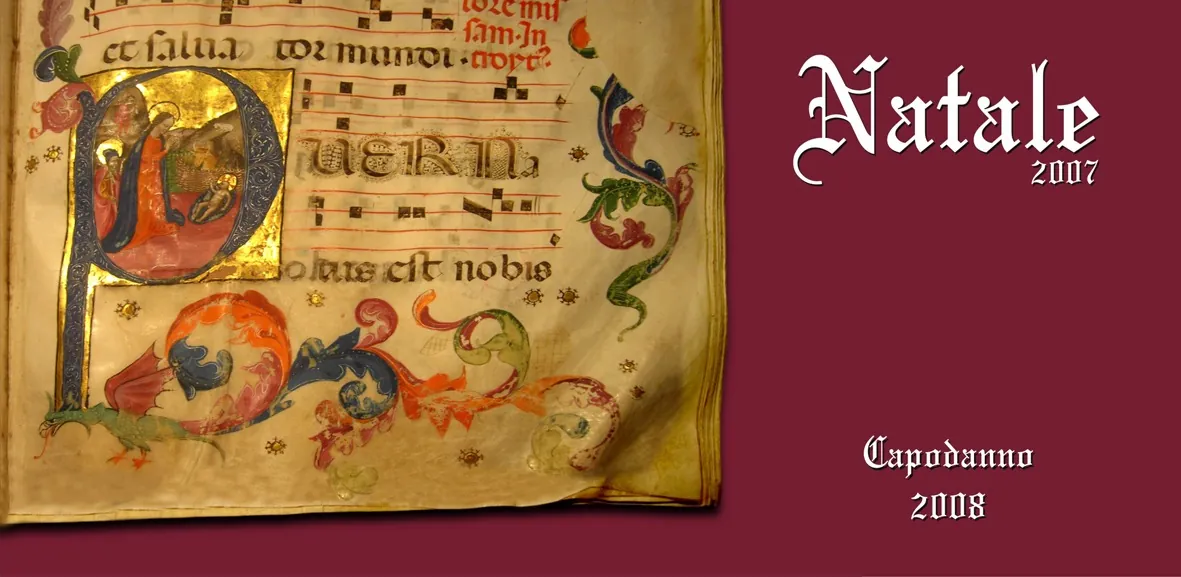 iore mis
sam·In
et salua tor mundi·troyt
PUER N
atus est nobis
Natale
2007
Capodanno
2008